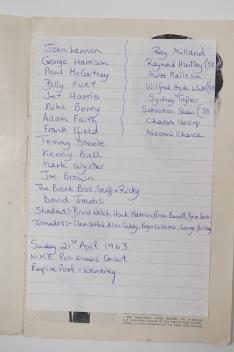 John Lennon
George Harrison
Paul McCartney
Billy Fury
Jet Harris
Mike Berry
Adam Faith
Frank Ifield
Tommy Steele
Kenny Ball
Mark Wynter
Joe Brown
The Brook Bros, Geoff + Ricky
David Jacobs
Shadows:- Bruce Welch, Hank Marvin, Brian
Tornados:- Clem Cattini, Alan Caddy, George Bellamy
Sunday 21st April 1963.
N.M.E. Poll Winners Concert.
Empire Pool - Wembley.
Ray Milland
Raymond Huntley
Miles Malleson
Wilfred Hyde White
Sydney Tafler
Sebastian Shaw
Charles Heslop
Naomi Chance